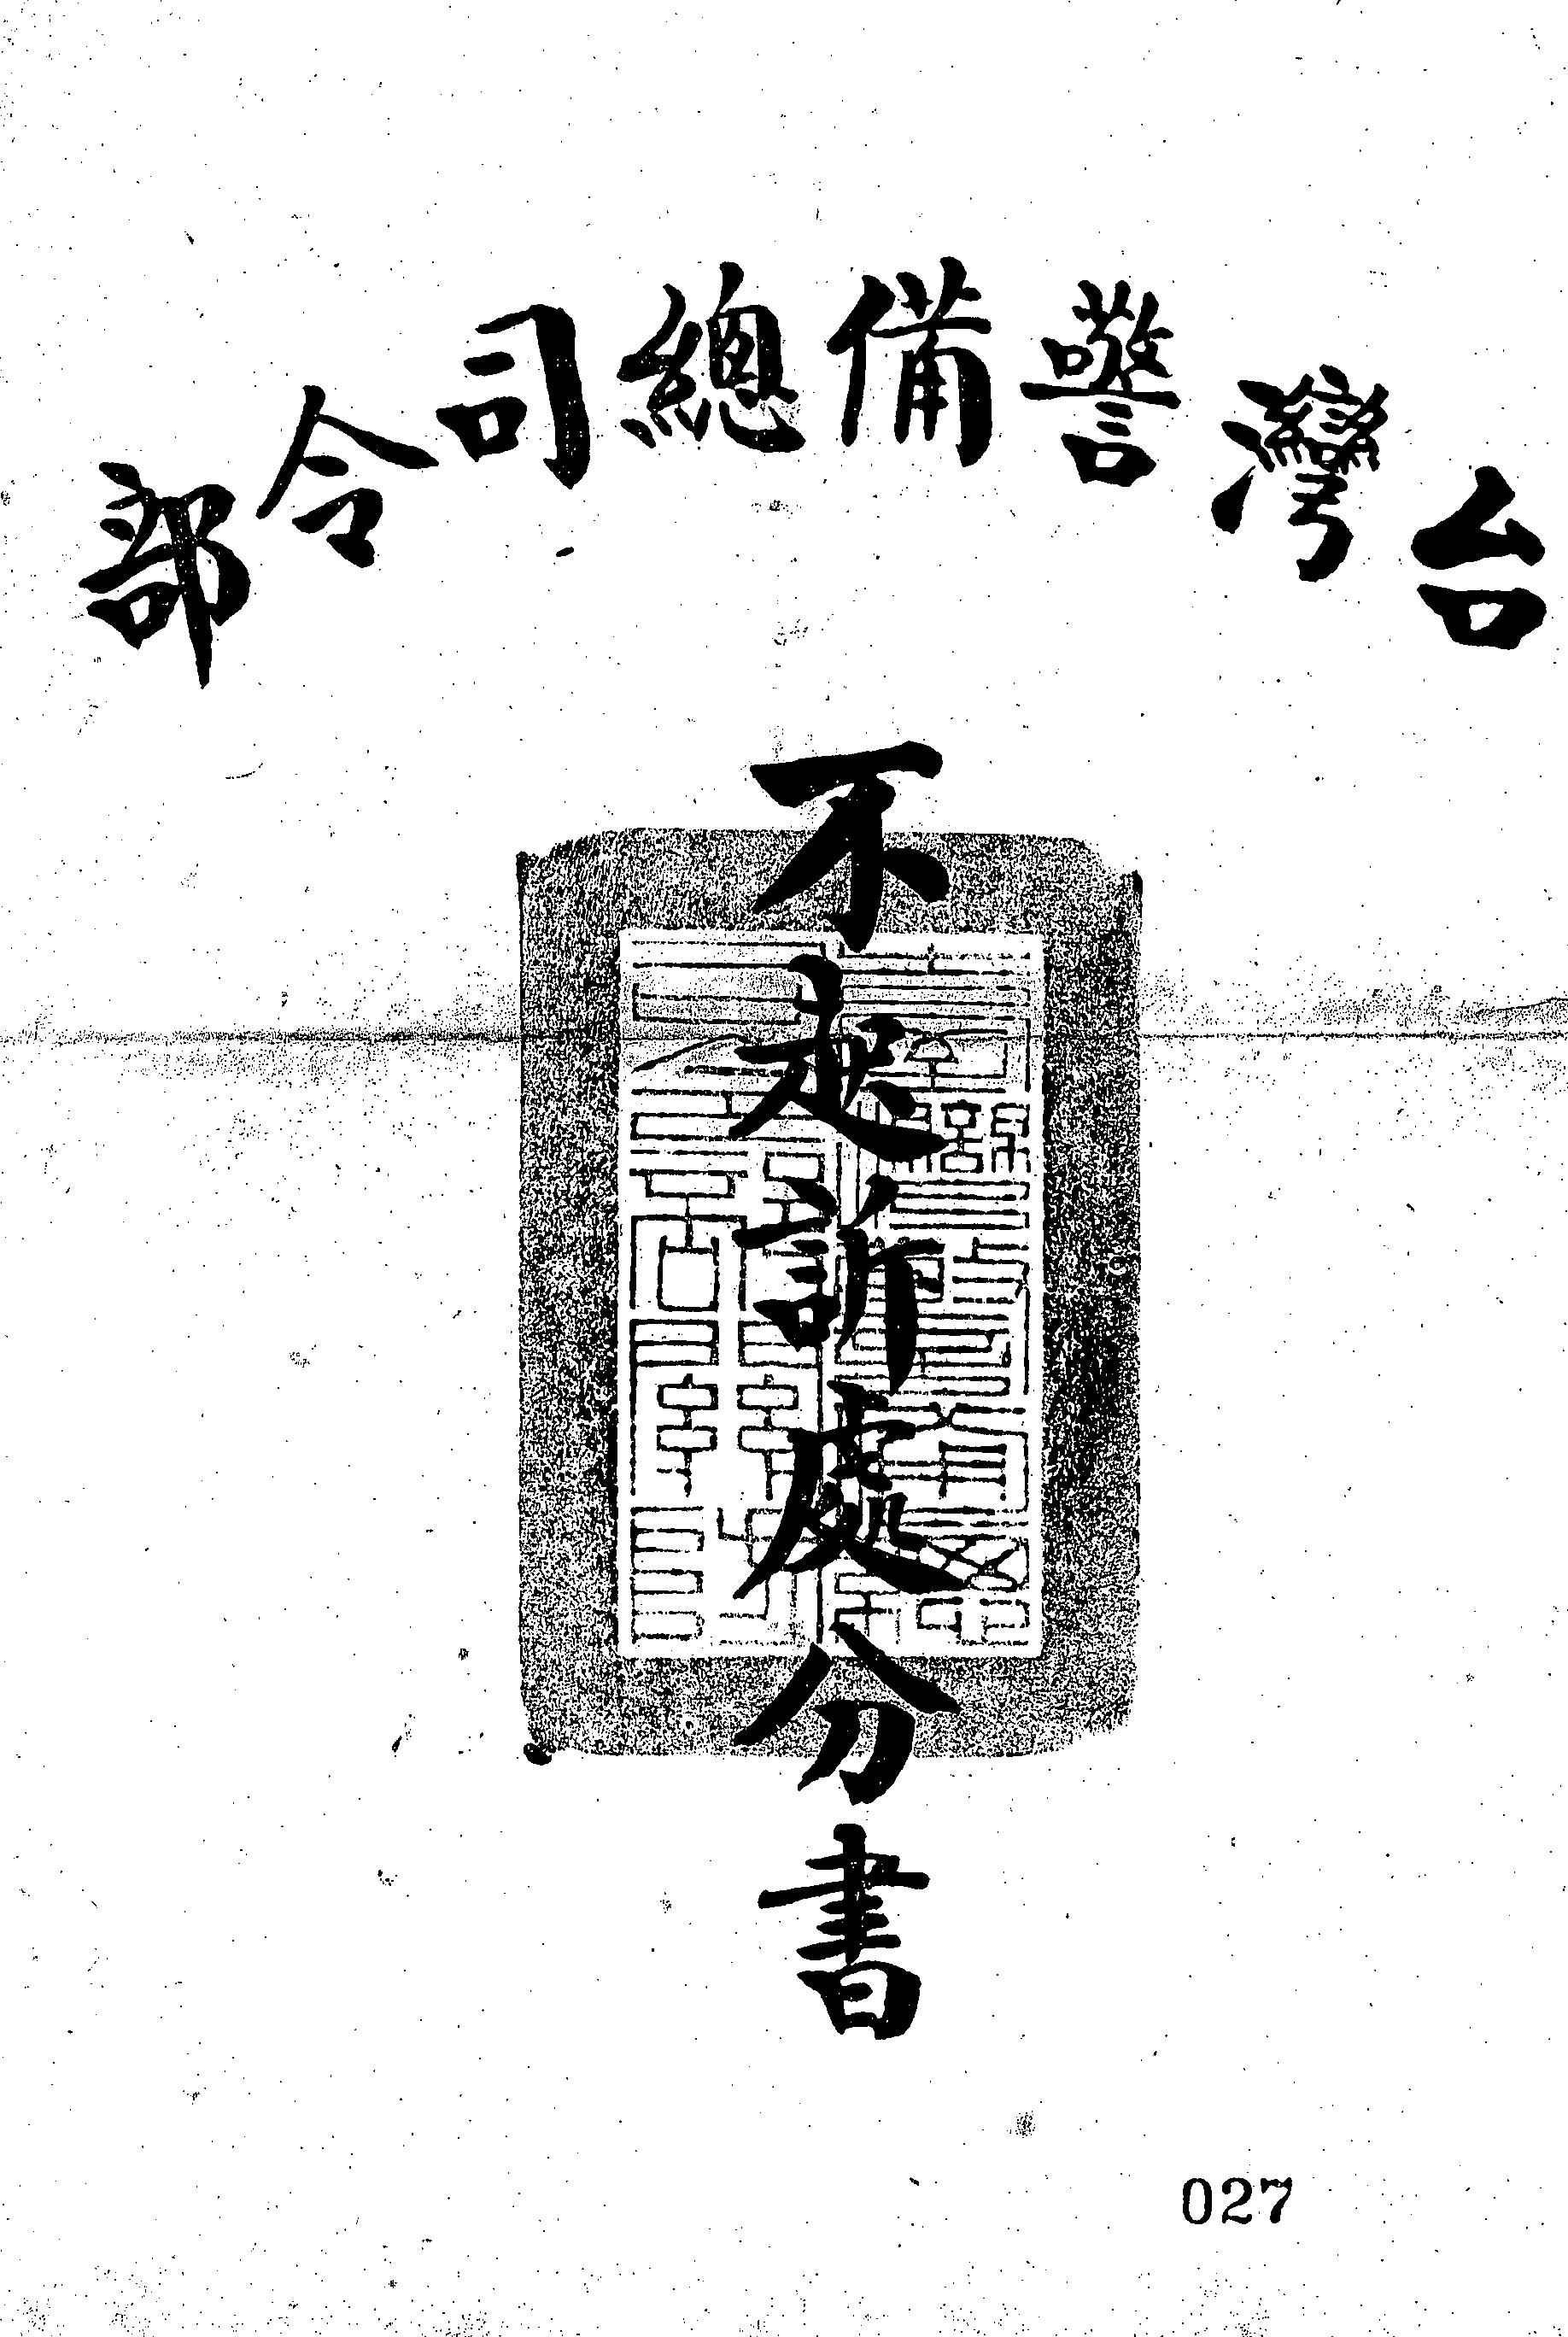 台灣警備總司令部
不起訴處分書
027